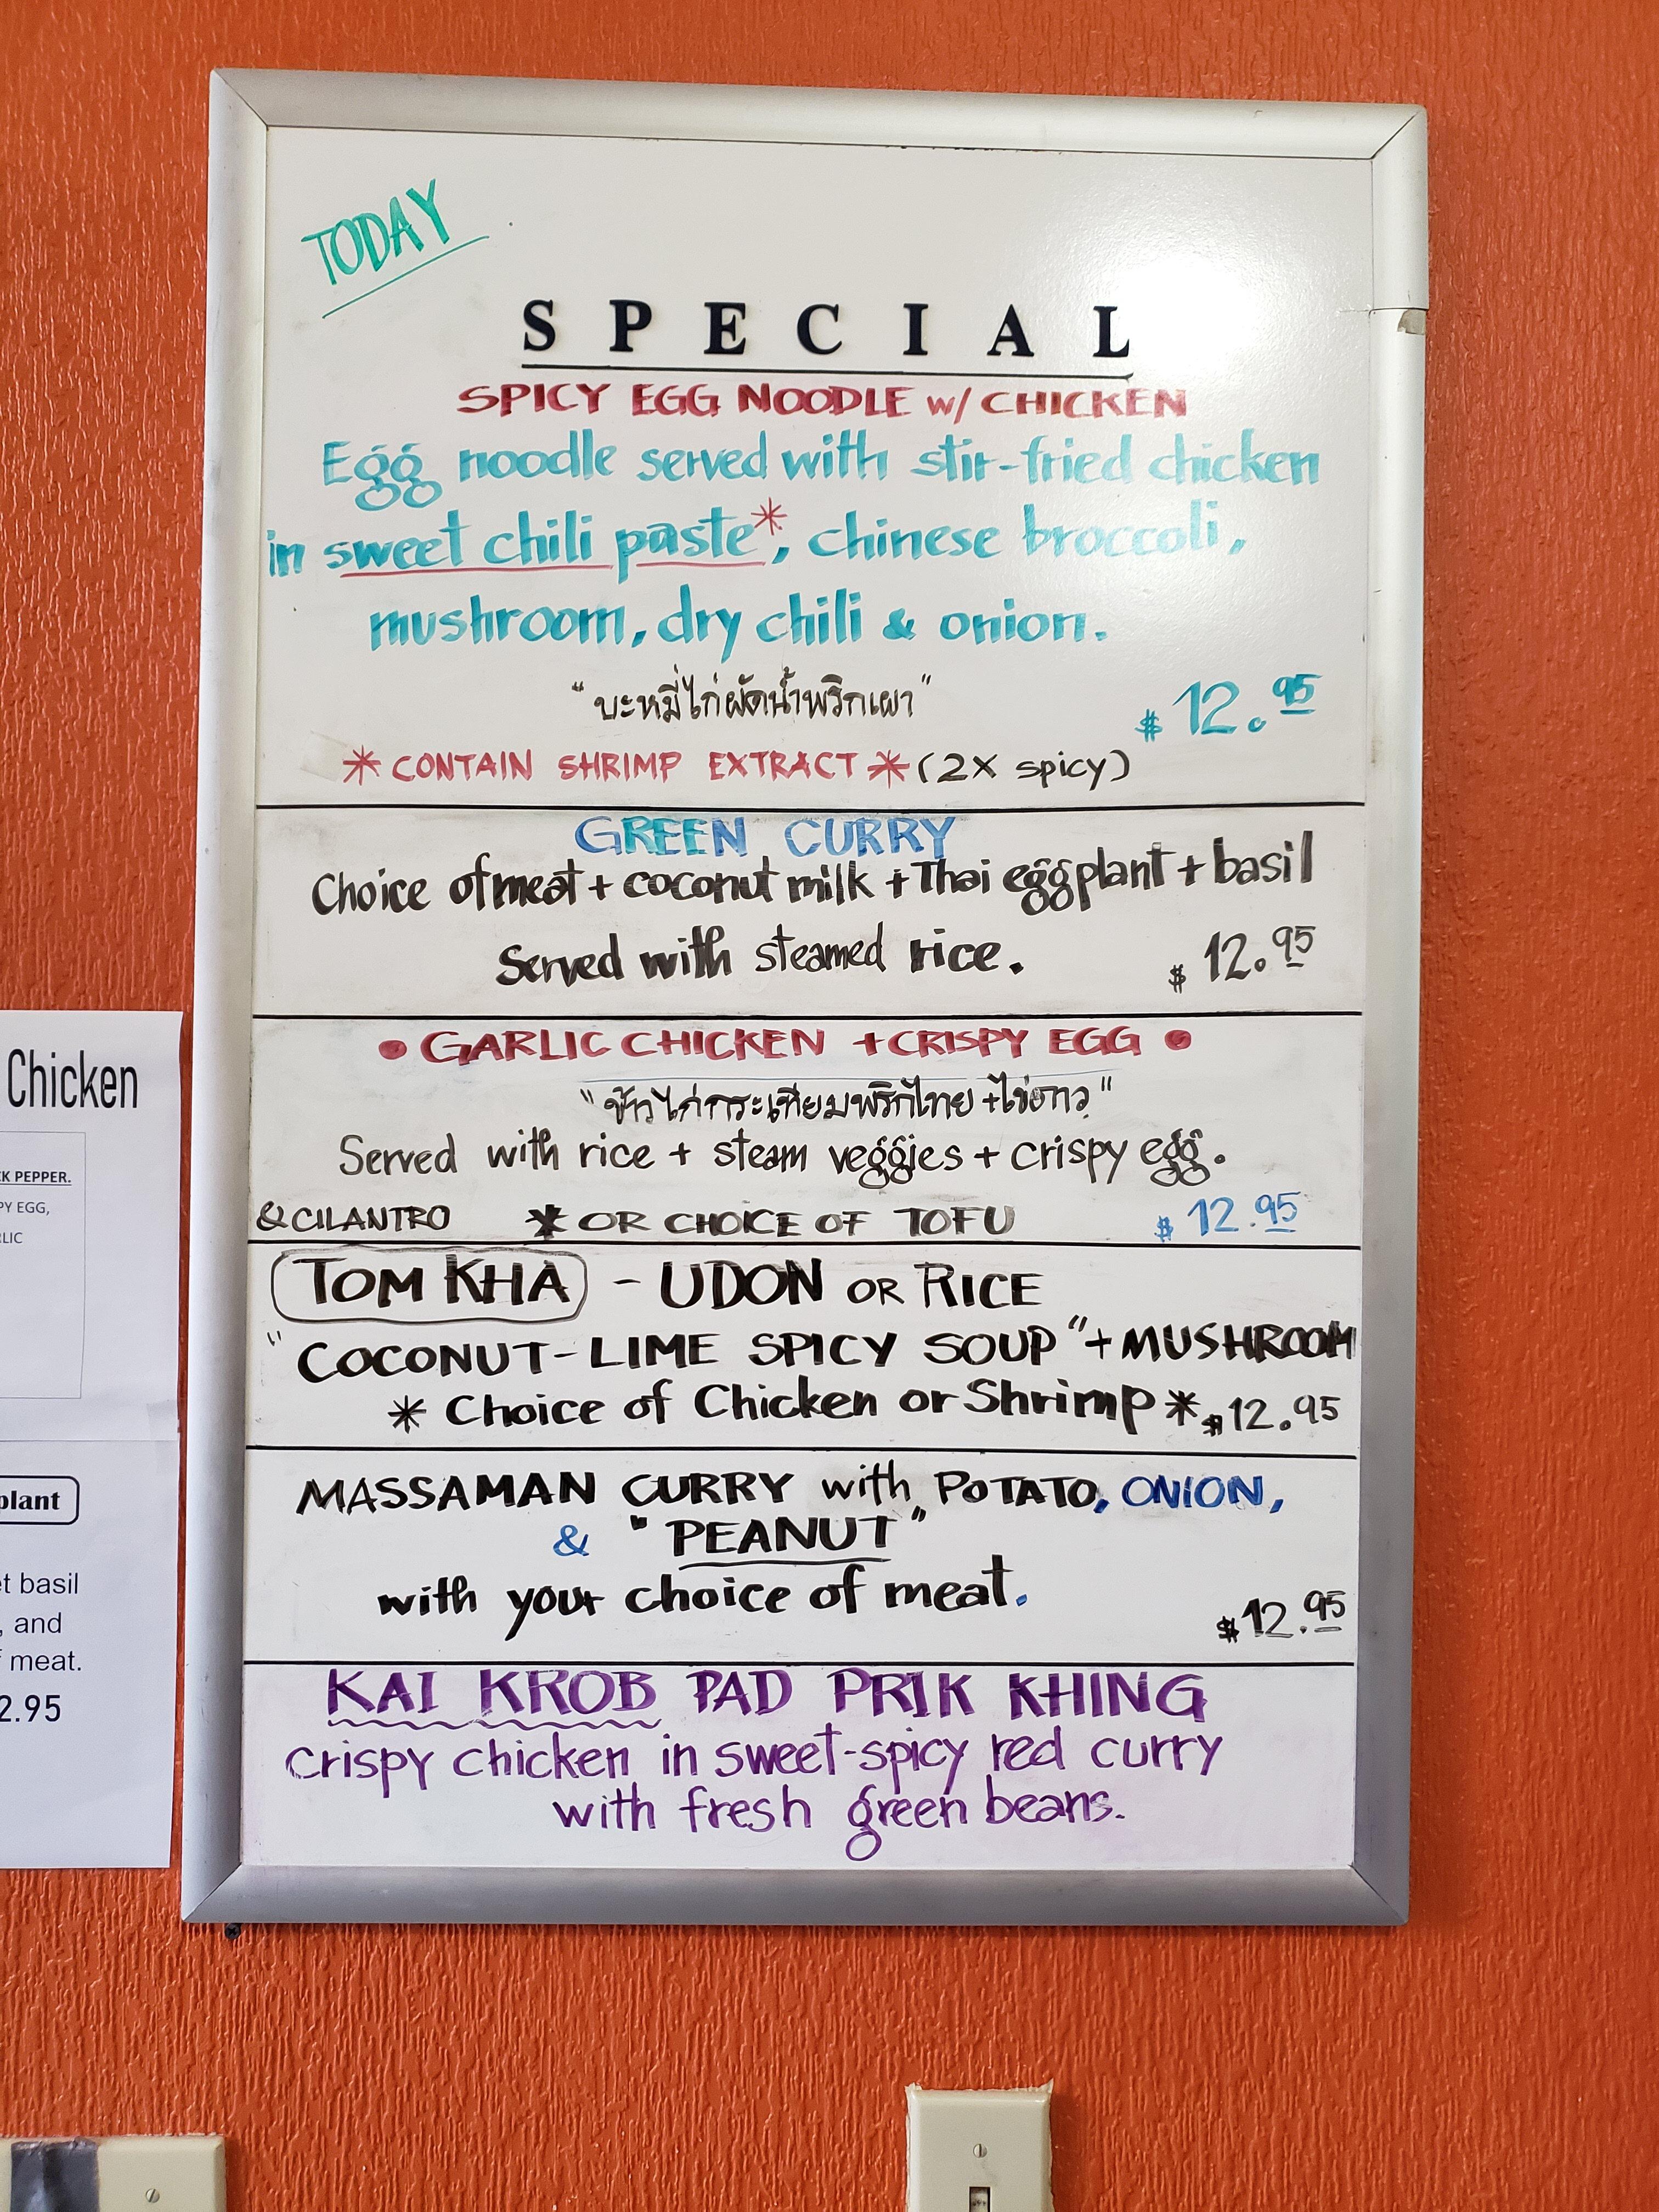 TODAY
SPECIAL
SPICY EGG NOODLE w/ CHICKEN
Egg noodle served with stir-fried chicken
in sweet chili paste*, chinese broccoli,
mushroom, dry chili & onion.
"บะหมี่ไก่ผัดน้ำพริกเผา" $12.95
*CONTAIN SHRIMP EXTRACT* (2X spicy)
GREEN CURRY
Choice of meat + coconut milk + Thai eggplant + basil
Served with steamed rice. $12.95
• GARLIC CHICKEN + CRISPY EGG •
"ข้าวไก่กระเทียมพริกไทย + ไข่ดาว"
Served with rice + steam veggies + crispy egg.
& CILANTRO * OR CHOICE OF TOFU $12.95
TOM KHA - UDON OR RICE
"COCONUT-LIME SPICY SOUP" + MUSHROOM
* Choice of Chicken or Shrimp * $12.95
MASSAMAN CURRY with POTATO, ONION,
& "PEANUT"
with your choice of meat.
$12.95
KAI KROB PAD PRIK KHING
Crispy chicken in sweet-spicy red curry
with fresh green beans.
Chicken
CK PEPPER.
PY EGG,
LIC
plant
et basil
, and
f meat.
2.95